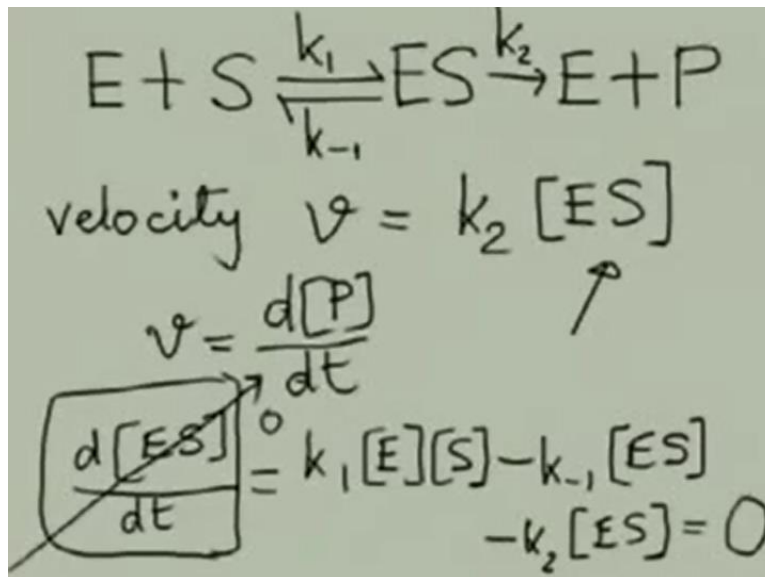 E + S ⇌ ES → E + P
k₁ k₂
k₋₁
velocity v = k₂ [ES]
v = d[P]/dt
d[ES]/dt → 0 = k₁[E][S] − k₋₁[ES]
− k₂[ES] = 0